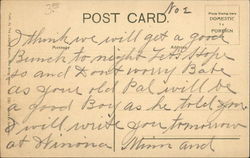 No 2
POST CARD.
Place Stamp Here
DOMESTIC
FOREIGN
Postage
Address
I think we will get a good
Bunch to night Lets Hope
so and Dont worry Babe
as your old Pal will be
a good Boy as he told you
I will write you tomorrow
at Winona Minn and